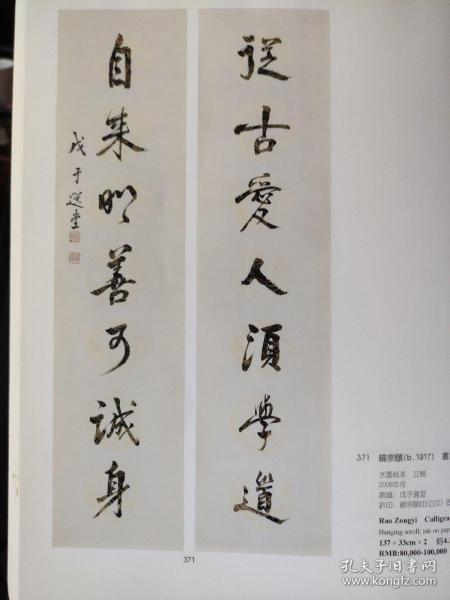 從古愛人須學道
自來明善可誠身
戊子選堂
371 饒宗頤(b.1917) 書
水墨紙本 立軸
2008年作
款識：戊子選堂
鈐印：饒宗頤印(白文)
Rao Zongyi Calligra
Hanging scroll; ink on pap
137 × 33cm × 2 約4.
RMB:80,000-100,000
371
孔夫子旧书网